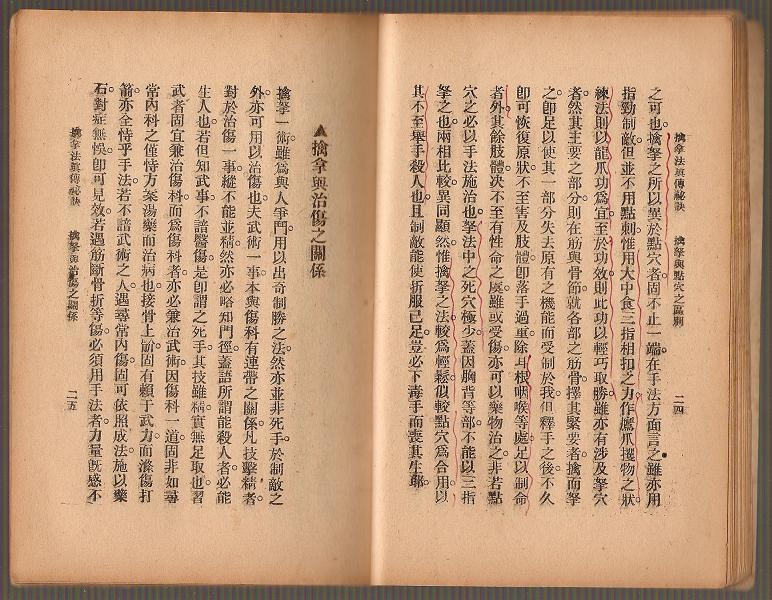 擒拿法眞傳秘訣　擒拏與點穴之區別　二四
之可也。擒拏之所以異於點穴者。固不止一端。在手法方面言之。雖亦用
指勁制敵。但並不用點刺。惟用大中食三指相扣之力。作鷹爪攫物之狀。
練法則以龍爪功爲宜。至於功效。則此功以輕巧取勝。雖亦有涉及拏穴
者。然其主要之部分。則在筋與骨節。就各部之筋骨。擇其緊要者。擒而拏
之。卽足以使其一部分失去原有之機能。而受制於我。但釋手之後。不久
卽可恢復原狀。不至害及肢體。卽落手過重。除耳根咽喉等處足以制命
者外。其餘肢體。决不至有性命之虞。雖或受傷。亦可以藥物治之。非若點
穴之必以手法施治也。拏法中之死穴極少。蓋因胸背等部。不能以三指
拏之也。兩相比較。異同顯然。惟擒拏之法。較爲輕鬆。似較點穴爲合用。以
其不至舉手殺人也。且制敵能使折服已足。豈必下毒手而喪其生耶。
▲擒拿與治傷之關係
擒拏一術。雖爲與人爭鬥。用以出奇制勝之法。然亦並非死手。於制敵之
外。亦可用以治傷也。夫武術一事。本與傷科有連帶之關係。凡技擊精者。
對於治傷一事。縱不能並精。然亦必略知門徑。蓋語所謂能殺人者。必能
生人也。若但知武事。不諳醫傷。是卽謂之死手。其技雖精。實無足取也。習
武者固宜兼治傷科。而爲傷科者。亦必兼治武術。因傷科一道。固非如尋
常內科之僅恃方案湯藥而治病也。接骨上骱。固有賴于武力。而滌傷打
箭。亦全恃乎手法。若不諳武術之人。遇尋常內傷。固可依照成法。施以藥
石。對症無悞。卽可見效。若遇筋斷骨折等傷。必須用手法者。力量旣感不
擒拿法眞傳秘訣　擒拏與治傷之關係　二五